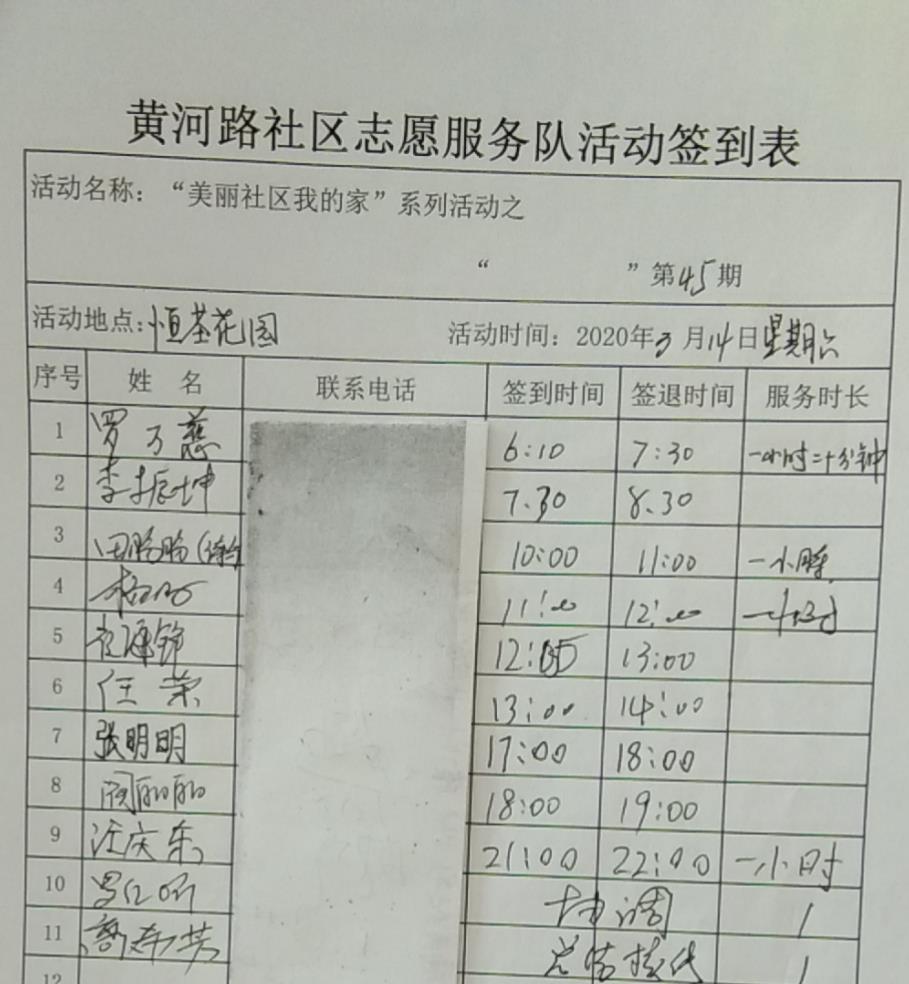 黄河路社区志愿服务队活动签到表
活动名称：“美丽社区我的家”系列活动之
“ ”第45期
活动地点：恒茶花园 活动时间：2020年3月14日星期六
序号 姓名 联系电话 签到时间 签退时间 服务时长
1 罗万慈 6:10 7:30 一小时二十分钟
2 李振坤 7.30 8.30
3 田盼盼 10:00 11:00 一小时
4 11:00 12:00 一小时
5 12:05 13:00
6 任荣 13:00 14:00
7 张明明 17:00 18:00
8 阎丽丽 18:00 19:00
9 汪庆东 21:00 22:00 一小时
10 协调 1
11 1
12